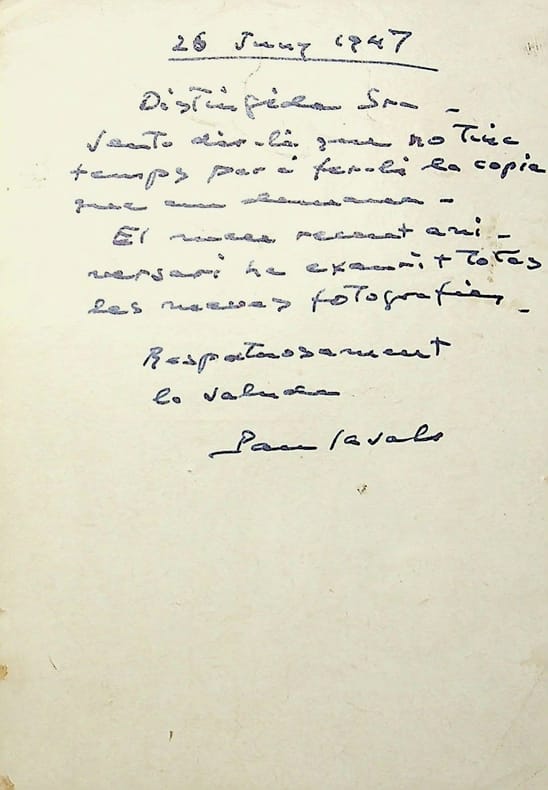 26 Juny 1947
Distingida Sra -
Sento dir-li que no tinc
temps per a fer-li la copia
que em demana -
El meu recent ani -
versari ha exaurit totes
les meves fotografies -
Respetuosament
la saluda
Pau Casals